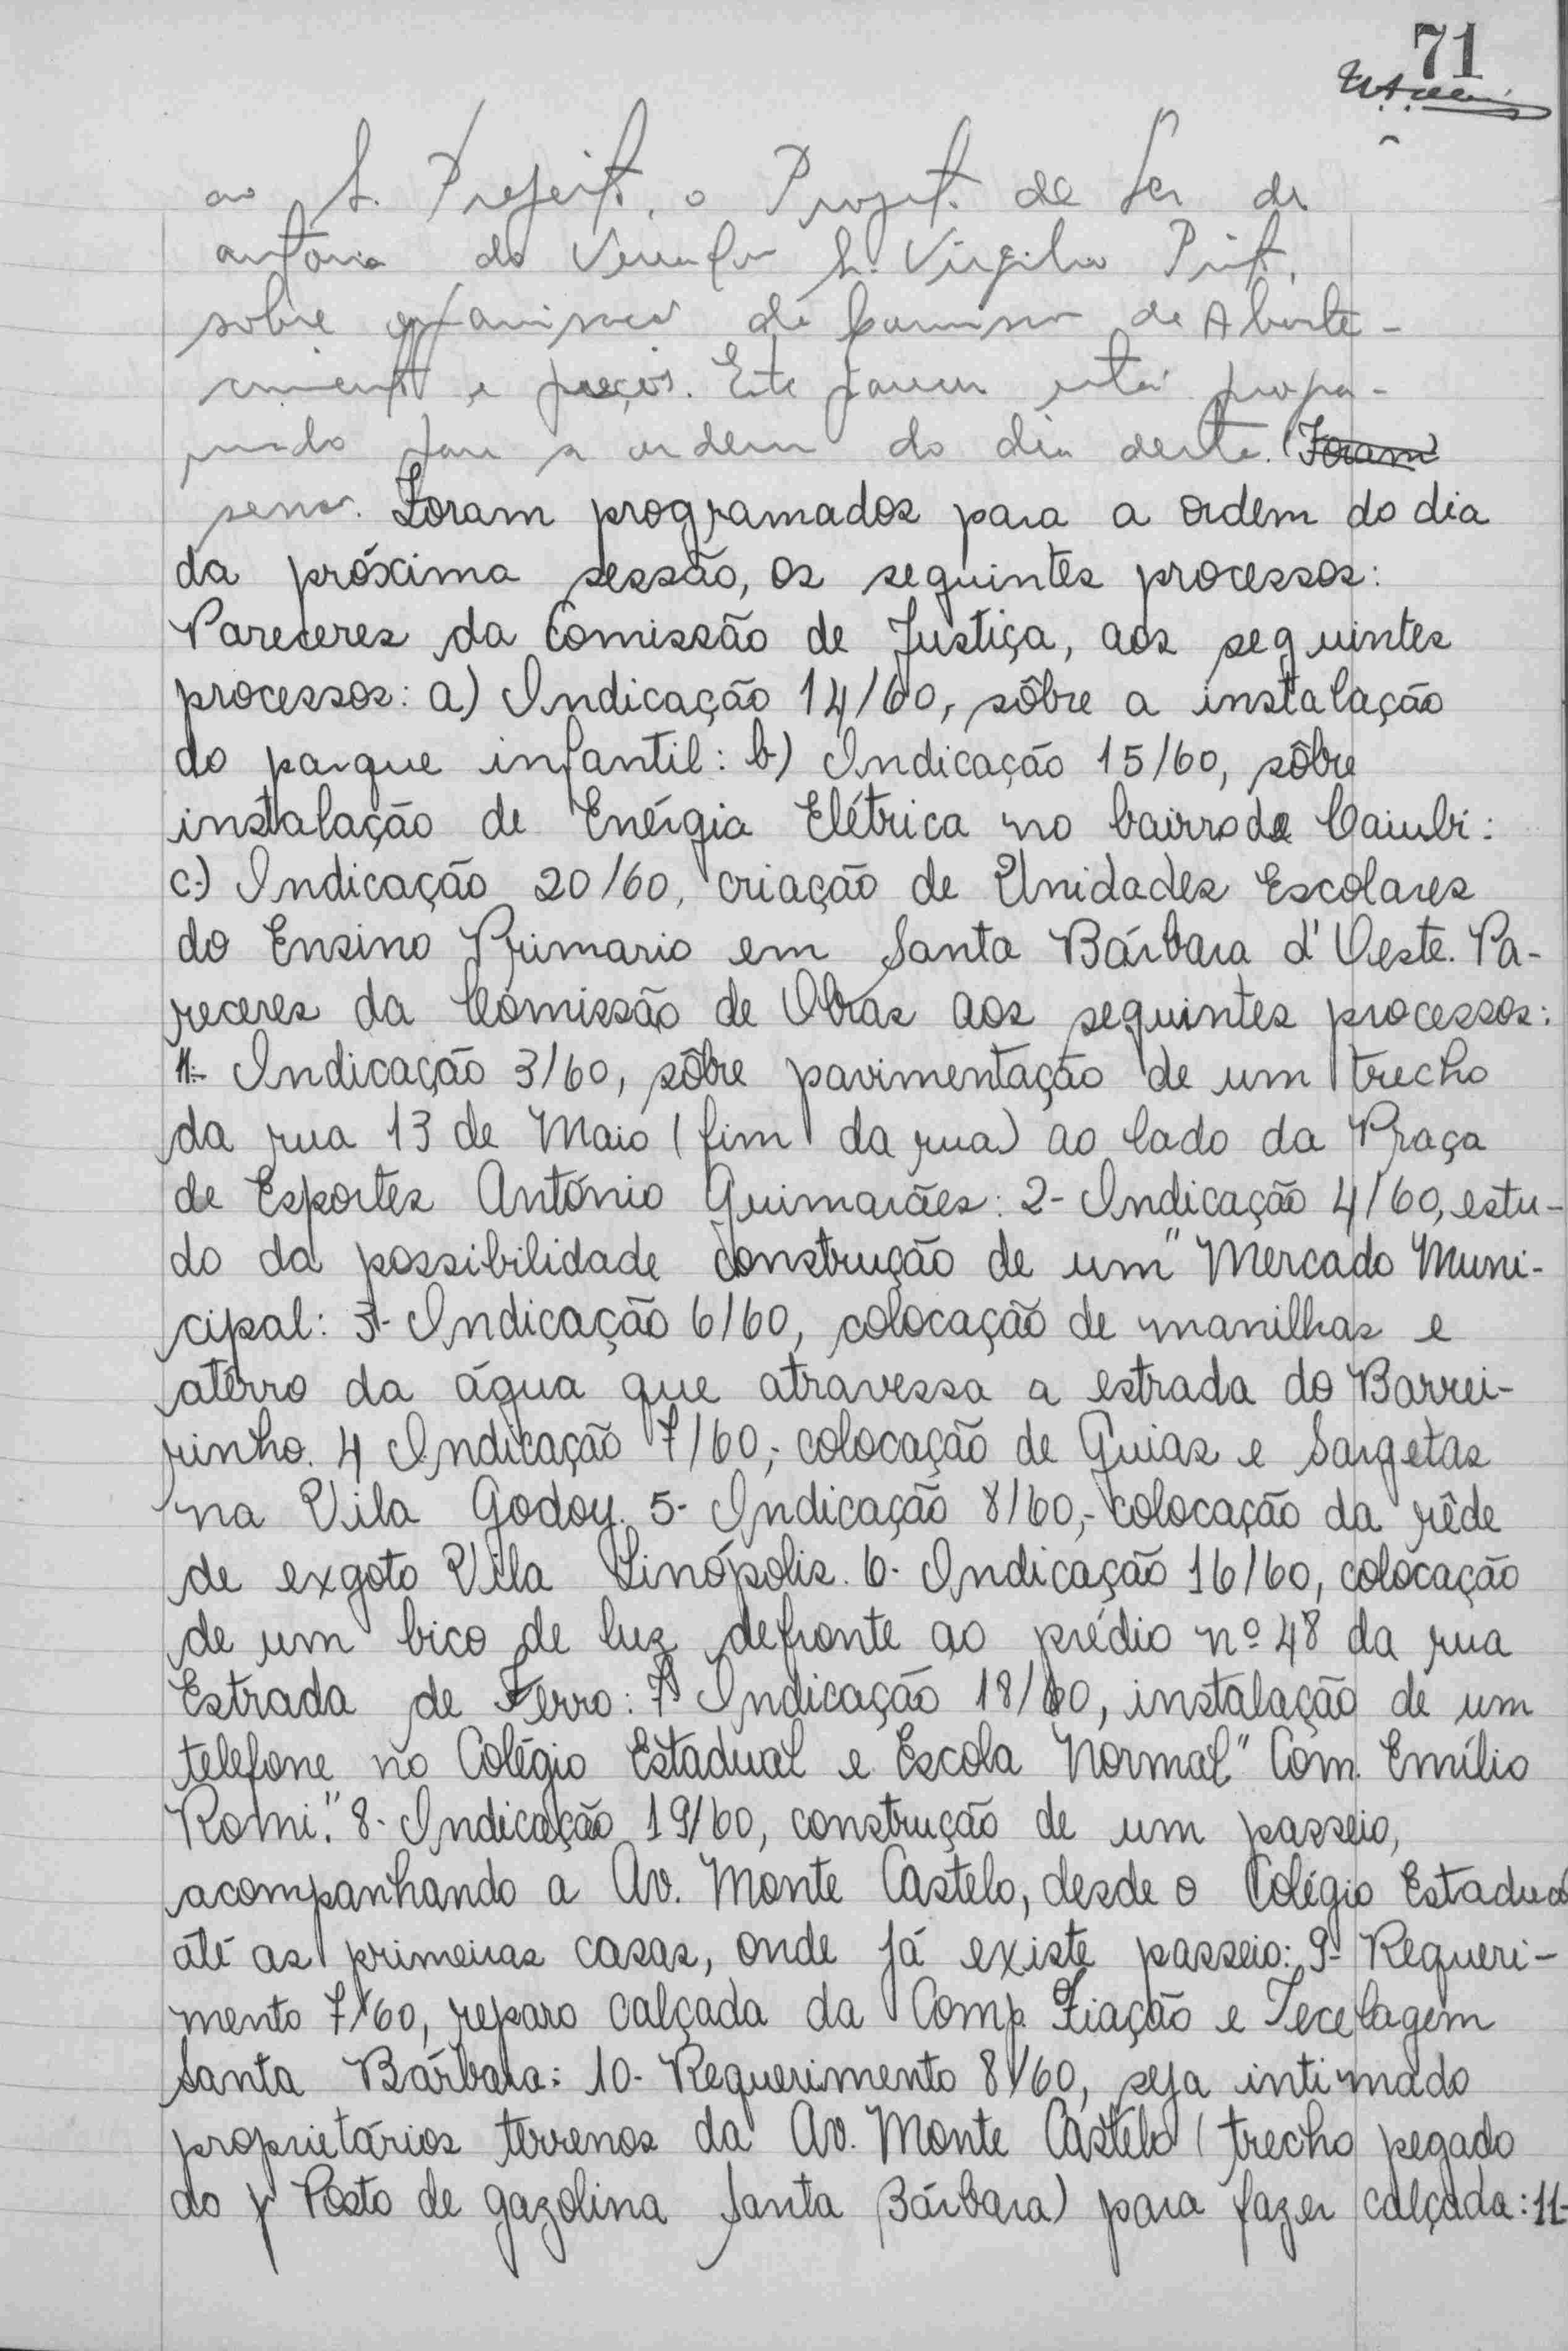 71
ao Sr. Prefeito, o Projeto de Lei de
autoria do Vereador Sr. Virgilio Pinto,
sobre organisacao de Comissao de Abaste-
cimento e preços. Este parecer está progra-
mado para a ordem do dia desta. Foram
sessao. Foram programados para a ordem do dia
da próxima sessão, os seguintes processos:
Pareceres da Comissão de Justiça, aos seguintes
processos: a) Indicação 14/60, sôbre a instalação
do parque infantil: b) Indicação 15/60, sôbre
instalação de Enérgia Elétrica no bairro de Caiubi:
c-) Indicação 20/60, criação de Unidades Escolares
do Ensino Primario em Santa Bárbara d'Oeste. Pa-
receres da Comissão de Obras aos seguintes processos:
1- Indicação 3/60, sôbre pavimentação de um trecho
da rua 13 de Maio (fim da rua) ao lado da Praça
de Esportes Antônio Guimarães: 2- Indicação 4/60, estu-
do da possibilidade construção de um "Mercado Muni-
cipal: 3- Indicação 6/60, colocação de manilhas e
atêrro da água que atravessa a estrada do Barrei-
rinho. 4 Indicação 7/60,- colocação de Guias e Sargetas
na Vila Godoy. 5- Indicação 8/60,- colocação da rêde
de exgoto Vila Linópolis. 6- Indicação 16/60, colocação
de um bico de luz defronte ao prédio nº 48 da rua
Estrada de Ferro: 7- Indicação 18/60, instalação de um
telefone no Colégio Estadual e Escola Normal "Com. Emílio
Romi." 8- Indicação 19/60, construção de um passeio,
acompanhando a Av. Monte Castelo, desde o Colégio Estadual
até as primeiras casas, onde já existe passeio: 9- Requeri-
mento 7/60, reparo calçada da Comp. Fiação e Tecelagem
Santa Bárbara: 10- Requerimento 8/60, seja intimado
proprietários terrenos da Av. Monte Castelo (trecho pegado
do Posto de gazolina Santa Bárbara) para fazer calçada: 11-